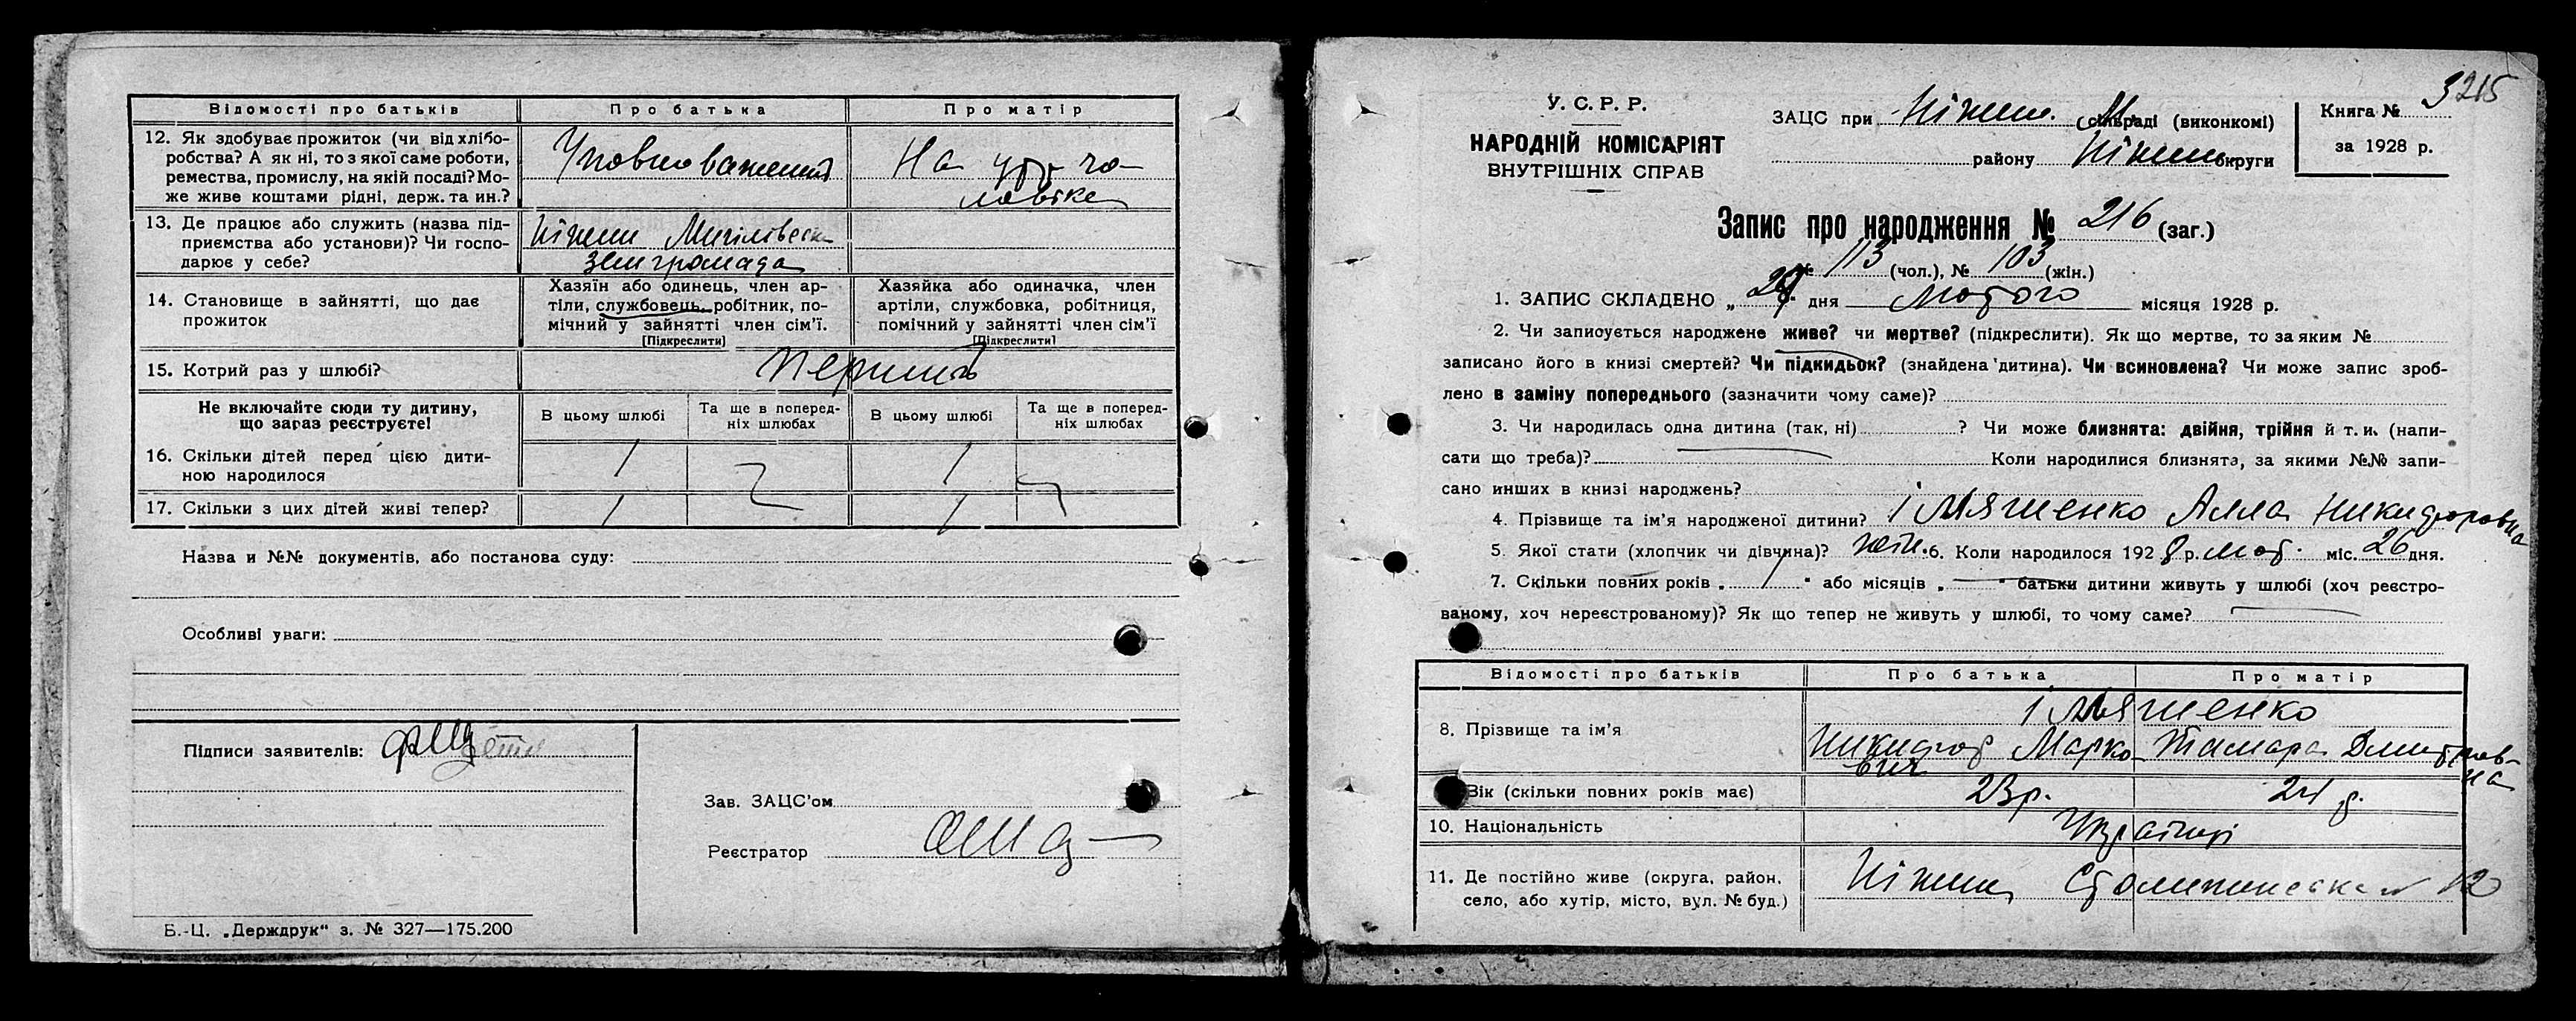 Відомості про батьків
Про батька
Про матір
12. Як здобуває прожиток (чи від хлібо-
робства? А як ні, то з якої саме роботи,
ремества, промислу, на якій посаді? Мо-
же живе коштами рідні, держ. та ин.?
Уповноважений
На утр. чо-
ловіка
13. Де працює або служить (назва під-
приємства або установи)? Чи госпо-
дарює у себе?
Ніжин
земгромада
14. Становище в зайнятті, що дає
прожиток
Хазяїн або одинець, член ар-
тіли, службовець, робітник, по-
мічний у зайнятті член сім'ї.
[Підкреслити]
Хазяйка або одиначка, член
артіли, службовка, робітниця,
помічний у зайнятті член сім'ї
[Підкреслити]
15. Котрий раз у шлюбі?
Перший
Не включайте сюди ту дитину,
що зараз реєструєте!
В цьому шлюбі
Та ще в поперед-
ніх шлюбах
В цьому шлюбі
Та ще в поперед-
ніх шлюбах
16. Скільки дітей перед цією дити-
ною народилося
1
1
17. Скільки з цих дітей живі тепер?
1
1
Назва и №№ документів, або постанова суду:
Особливі уваги:
Підписи заявителів:
Зав. ЗАЦС'ом
Реєстратор
Б.-Ц. „Держдрук" з. № 327—175.200
215
У. С. Р. Р.
НАРОДНІЙ КОМІСАРІЯТ
ВНУТРІШНІХ СПРАВ
ЗАЦС при Ніжин. М. сільраді (виконкомі)
району Ніжин округи
Книга № 3
за 1928 р.
Запис про народження № 216 (заг.)
№ 113 (чол.), № 103 (жін.)
1. ЗАПИС СКЛАДЕНО „ дня Лютого місяця 1928 р.
2. Чи записується народжене живе? чи мертве? (підкреслити). Як що мертве, то за яким №
записано його в книзі смертей? Чи підкидьок? (знайдена дитина). Чи всиновлена? Чи може запис зроб-
лено в заміну попереднього (зазначити чому саме)?
3. Чи народилась одна дитина (так, ні) ? Чи може близнята: двійня, трійня й т. и. (напи-
сати що треба)? Коли народилися близнята, за якими №№ запи-
сано инших в книзі народжень?
4. Прізвище та ім'я народженої дитини? Ілляшенко Алла Никифоровна
5. Якої стати (хлопчик чи дівчина)? жін. 6. Коли народилося 1928 р. лют. міс. 26 дня.
7. Скільки повних років „ " або місяців „ " батьки дитини живуть у шлюбі (хоч реєстро-
ваному, хоч нереєстрованому)? Як що тепер не живуть у шлюбі, то чому саме?
Відомості про батьків
Про батька
Про матір
8. Прізвище та ім'я
Ілляшенко
Никифор Марко-
вич
Тамара Дмитров-
на
Вік (скільки повних років має)
23 р.
24 р.
10. Національність
Українці
11. Де постійно живе (округа, район,
село, або хутір, місто, вул. № буд.)
Ніжин, № 12